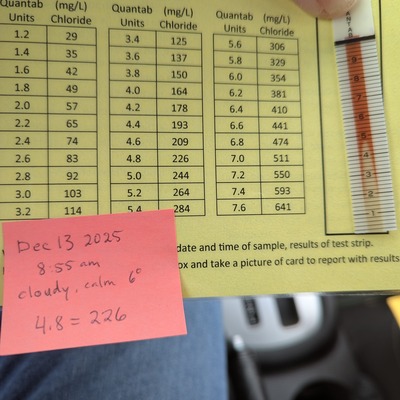 Quantab (mg/L) Quantab (mg/L) Quantab (mg/L)
Units Chloride Units Chloride Units Chloride
1.2 29 3.4 125 5.6 306
1.4 35 3.6 137 5.8 329
1.6 42 3.8 150 6.0 354
1.8 49 4.0 164 6.2 381
2.0 57 4.2 178 6.4 410
2.2 65 4.4 193 6.6 441
2.4 74 4.6 209 6.8 474
2.6 83 4.8 226 7.0 511
2.8 92 5.0 244 7.2 550
3.0 103 5.2 264 7.4 593
3.2 114 5.4 284 7.6 641
date and time of sample, results of test strip.
ox and take a picture of card to report with results
Dec 13 2025
8:55 am
cloudy, calm 6°
4.8 = 226
9
8
7
6
5
4
3
2
1